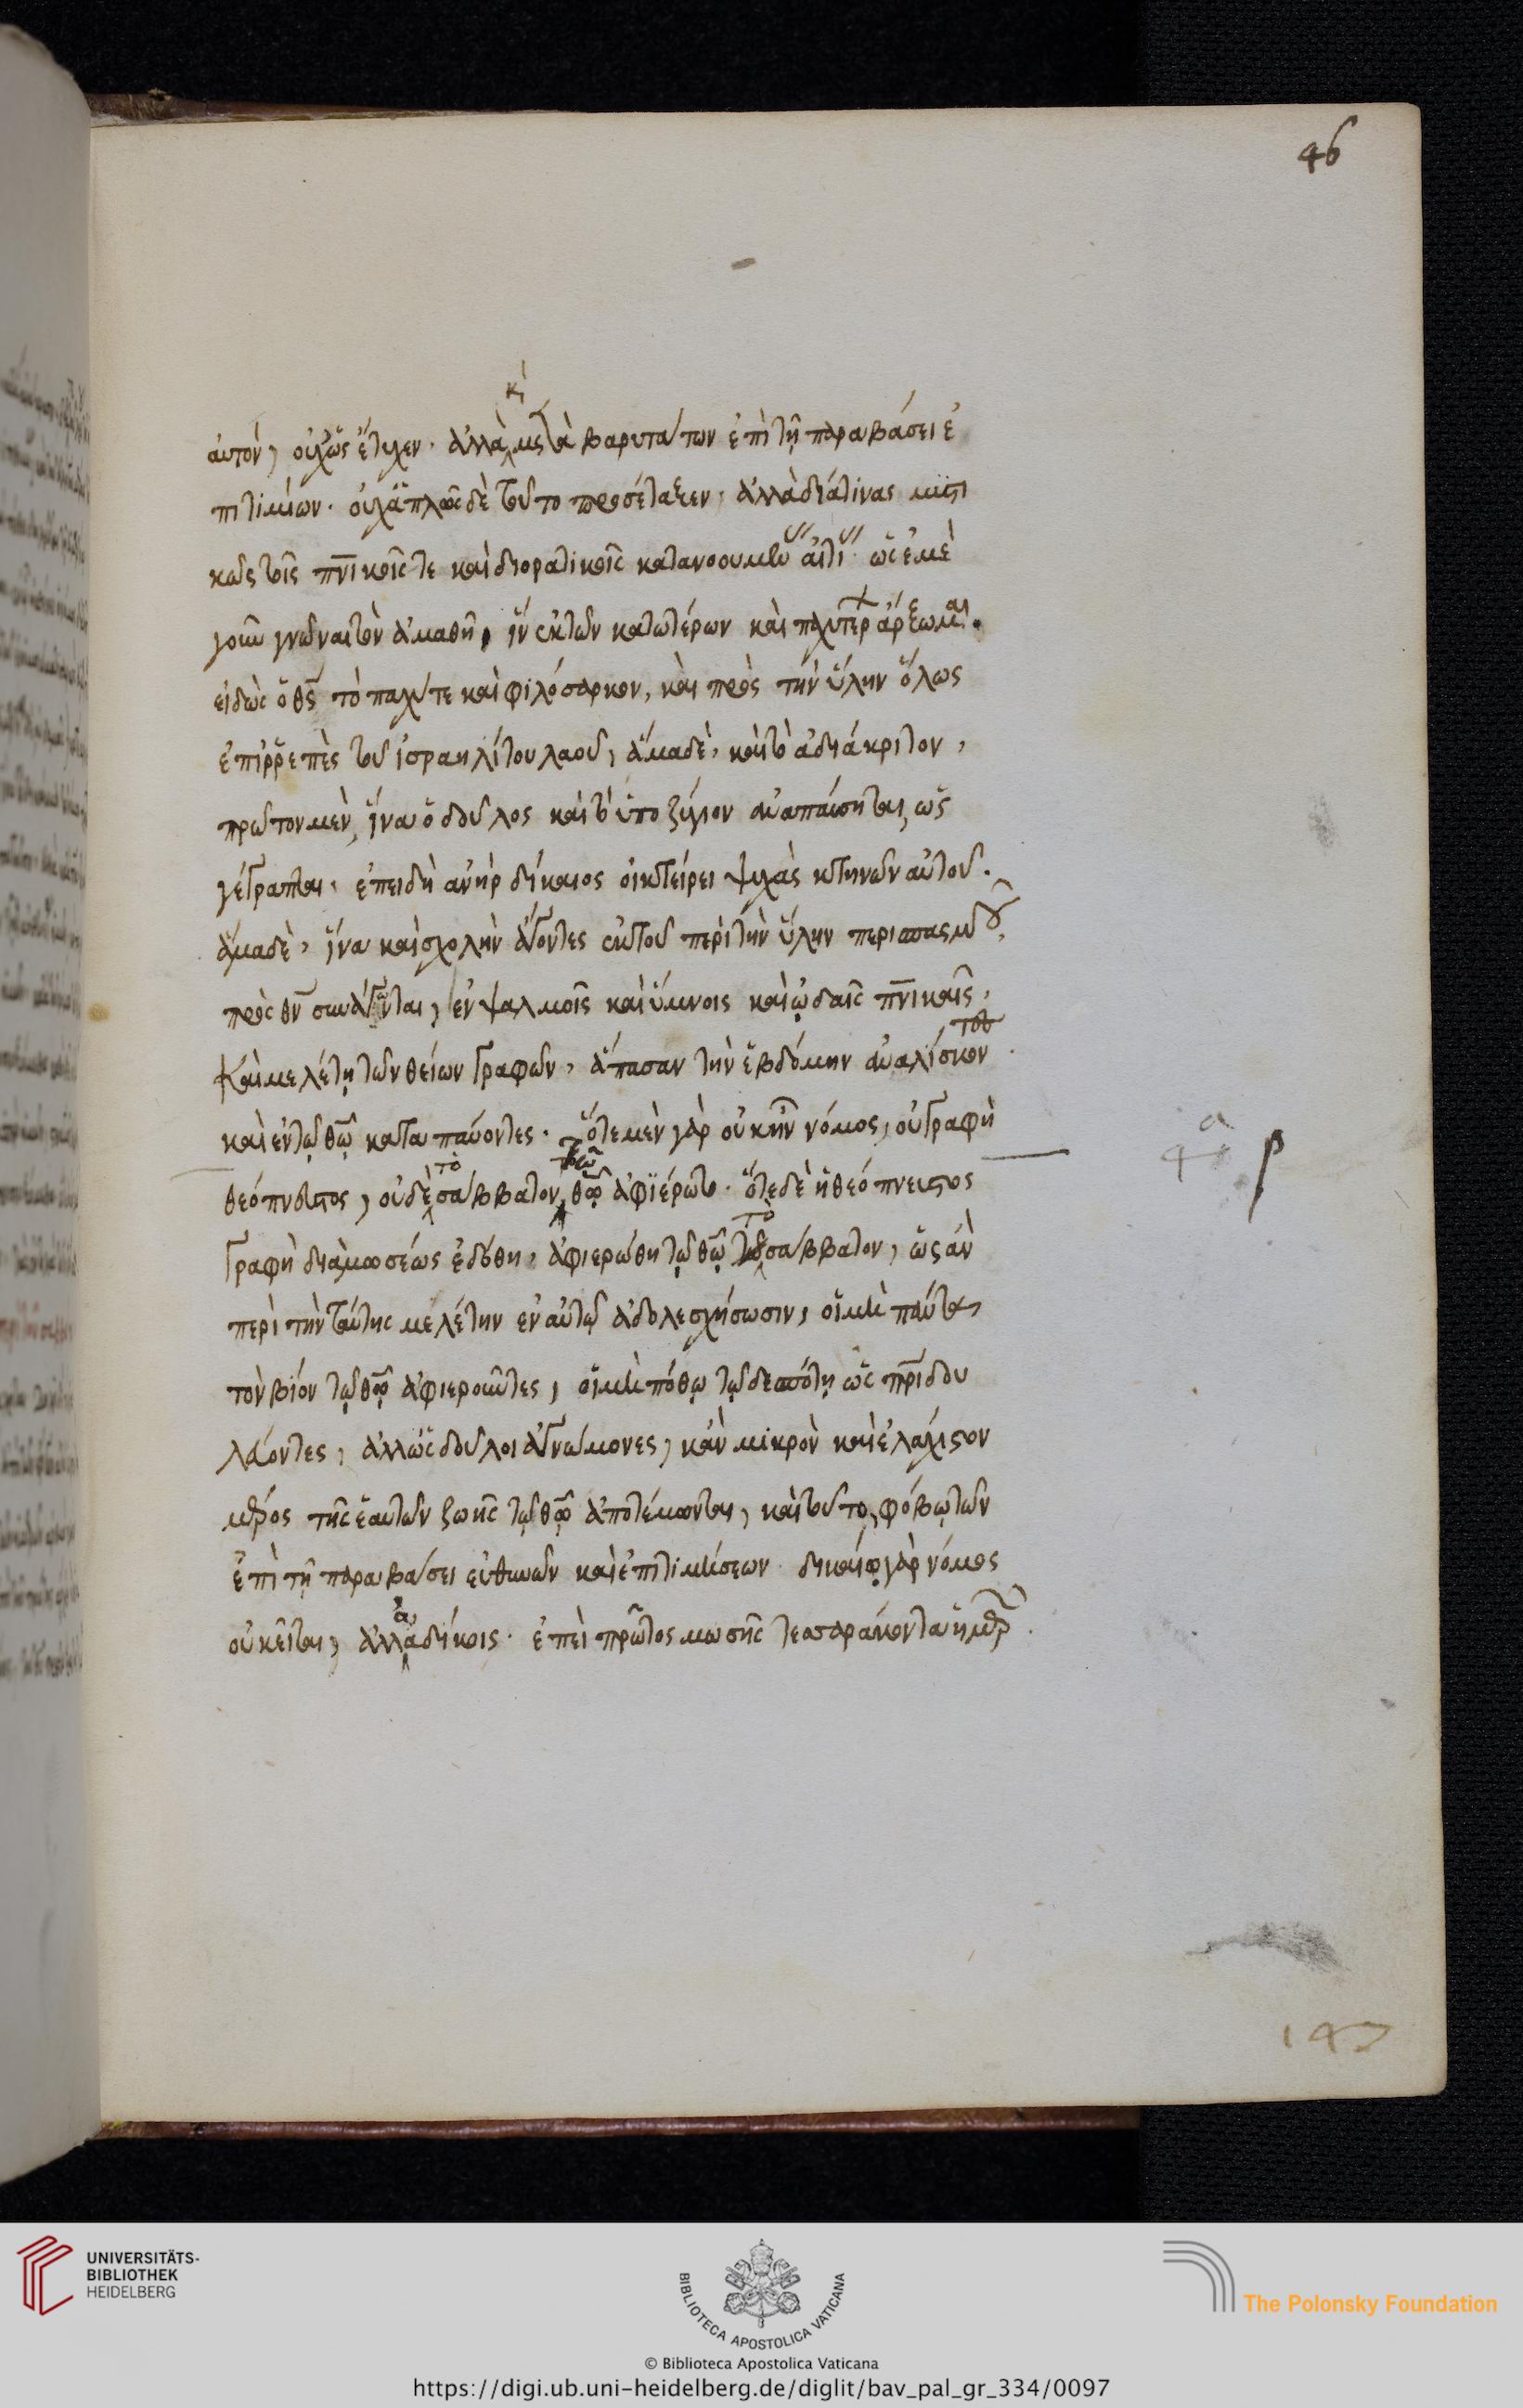 46
αὐτὸν, οὐχ ὡς ἔτυχεν· ἀλλὰ καὶ μετὰ βαρυτάτων ἐπὶ τῇ παραβάσει ἐ
πιτιμίων· οὐχ ἁπλῶς δὲ τοῦτο προσέταξεν, ἀλλὰ διά τινας μυστι
κὰς τοῖς πνικοῖς τε καὶ διορατικοῖς κατανοουμένας αἰτίας· ὡς ἐμὲ
γοῦν γνῶναι τὸν ἀμαθῆ, ἵν ἐκ τῶν κατωτέρων καὶ παχυτέρων ἄρξωμαι.
εἰδὼς ὁ θς τὸ παχύ τε καὶ φιλόσαρκον, καὶ πρὸς τὴν ὕλην ὅλως
ἐπιρρεπὲς τοῦ ἰσραηλίτου λαοῦ, ἅμα δὲ, καὶ τὸ ἀδιάκριτον,
πρῶτον μὲν, ἵνα ὁ δοῦλος καὶ τὸ ὑποζύγιον ἀναπαύσηται, ὡς
γέγραπται· ἐπειδὴ ἀνὴρ δίκαιος οἰκτείρει ψυχὰς κτηνῶν αὐτοῦ.
ἅμα δὲ, ἵνα καὶ σχολὴν ἄγοντες ἐκ τοῦ περὶ τὴν ὕλην περισπασμοῦ,
πρὸς θν συνάγωνται, ἐν ψαλμοῖς καὶ ὕμνοις καὶ ᾠδαῖς πνικαῖς,
καὶ μελέτῃ τῶν θείων γραφῶν, ἅπασαν τὴν ἑβδόμην ἀναλίσκοντες
καὶ ἐν τῷ θῶ καταπαύοντες· ὅτε μὲν γὰρ οὐκ ἦν νόμος, οὐ γραφὴ
θεόπνευστος, οὐδὲ τὸ σάββατον τῷ θῶ ἀφϊέρωτο· ὅτε δὲ ἡ θεόπνευστος
γραφὴ διὰ μωσέως ἐδόθη, ἀφιερώθη τῷ θῶ τὸ σάββατον, ὡς ἂν
περὶ τὴν ταύτης μελέτην ἐν αὐτῷ ἀδολεσχήσωσιν, οἱ μὴ πάντα
τὸν βίον τῷ θῶ ἀφιεροῦντες, οἱ μὴ πόθῳ τῷ δεσπότῃ ὡς πρι δου
λεύοντες, ἀλλ ὡς δοῦλοι ἀγνώμονες, κἂν μικρὸν καὶ ἐλάχιστον
μέρος τῆς ἑαυτῶν ζωῆς τῷ θῶ ἀποτέμωνται, καὶ τοῦτο, φόβῳ τῶν
ἐπὶ τῇ παραβάσει εὐθυνῶν καὶ ἐπιτιμήσεων· δικαίῳ γὰρ νόμος
οὐ κεῖται, ἀλλὰ ἀδίκοις· ἐπεὶ πρῶτος μωσῆς τεσσαράκοντα ἡμέρας
147
UNIVERSITÄTS-
BIBLIOTHEK
HEIDELBERG
BIBLIOTECA APOSTOLICA VATICANA
The Polonsky Foundation
© Biblioteca Apostolica Vaticana
https://digi.ub.uni-heidelberg.de/diglit/bav_pal_gr_334/0097